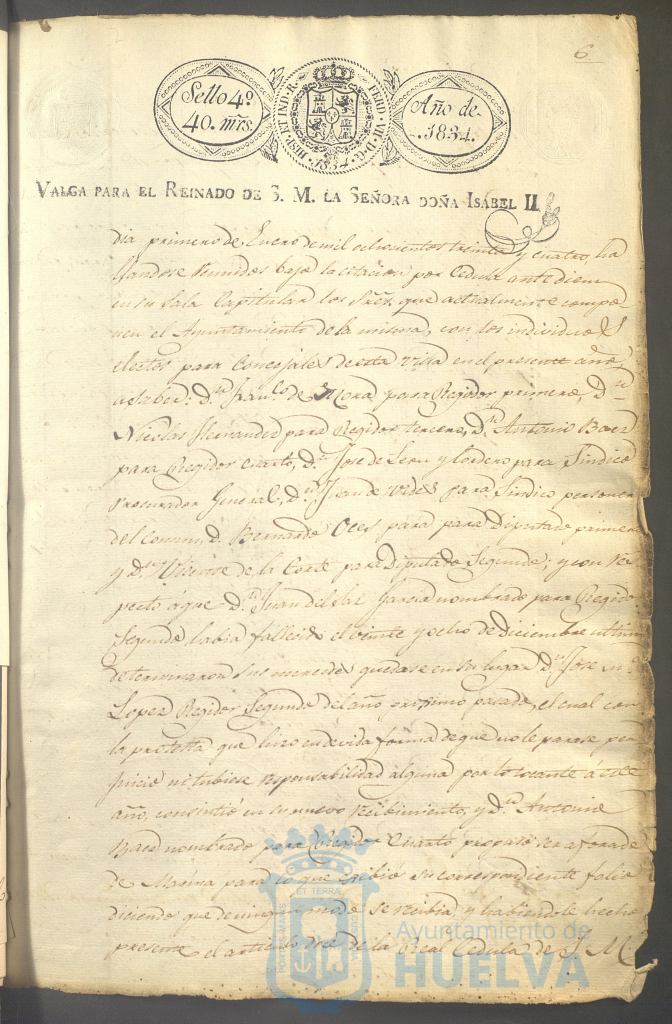 6
Sello 4º
40. mrs.
HISP. ET IND. R. FERD. VII. D. G. 1834.
Año de
1834.
VALGA PARA EL REINADO DE S. M. LA SEÑORA DOÑA ISABEL II
dia primero de Enero de mil ochocientos treinta y cuatro, ha
llandose reunidos bajo la citacion por Cedula ante diem
en su Sala Capitular los Sres. que actualmente compo
nen el Ayuntamiento de la misma, con los individuos
electos para Concejales de esta Villa en el presente año,
a saber: Dn. Franco. de Mora para Regidor primero, Dn
Nicolas Hernandez para Regidor tercero, Dn. Antonio Baez
para Regidor cuarto, Dn. Jose de Leru y Cordero para Sindico
Procurador General, Dn. Juan de Vides para Sindico personero
del comun, D. Bernardo Oces para para Diputado primero
y Dn. Vicente de la Corte para Diputado Segundo; y con res
pecto á que Dn. Juan del Sar Garcia nombrado para Regidor
Segundo habia fallecido el veinte y ocho de Diciembre ultimo
determinaron sus mercedes quedase en su lugar Dn. Jose Ma
Lopez Regidor Segundo del año proximo pasado, el cual con
la protesta que hizo en devida forma de que no le parase per
juicio ni tubiese responsabilidad alguna por lo tocante á este
año, consintió en su nuevo recibimiento, y Dn. Antonio
Baez nombrado para Regidor Cuarto propuso ser aforado
de Marina para lo que exibio su correspondiente folio
diciendo que de ningun modo se recibia y habiendole hecho
presente el articulo de la Real Cedula de S. M.
PORTUS MARIS ET TERRAE CUSTODIA
Ayuntamiento de
HUELVA